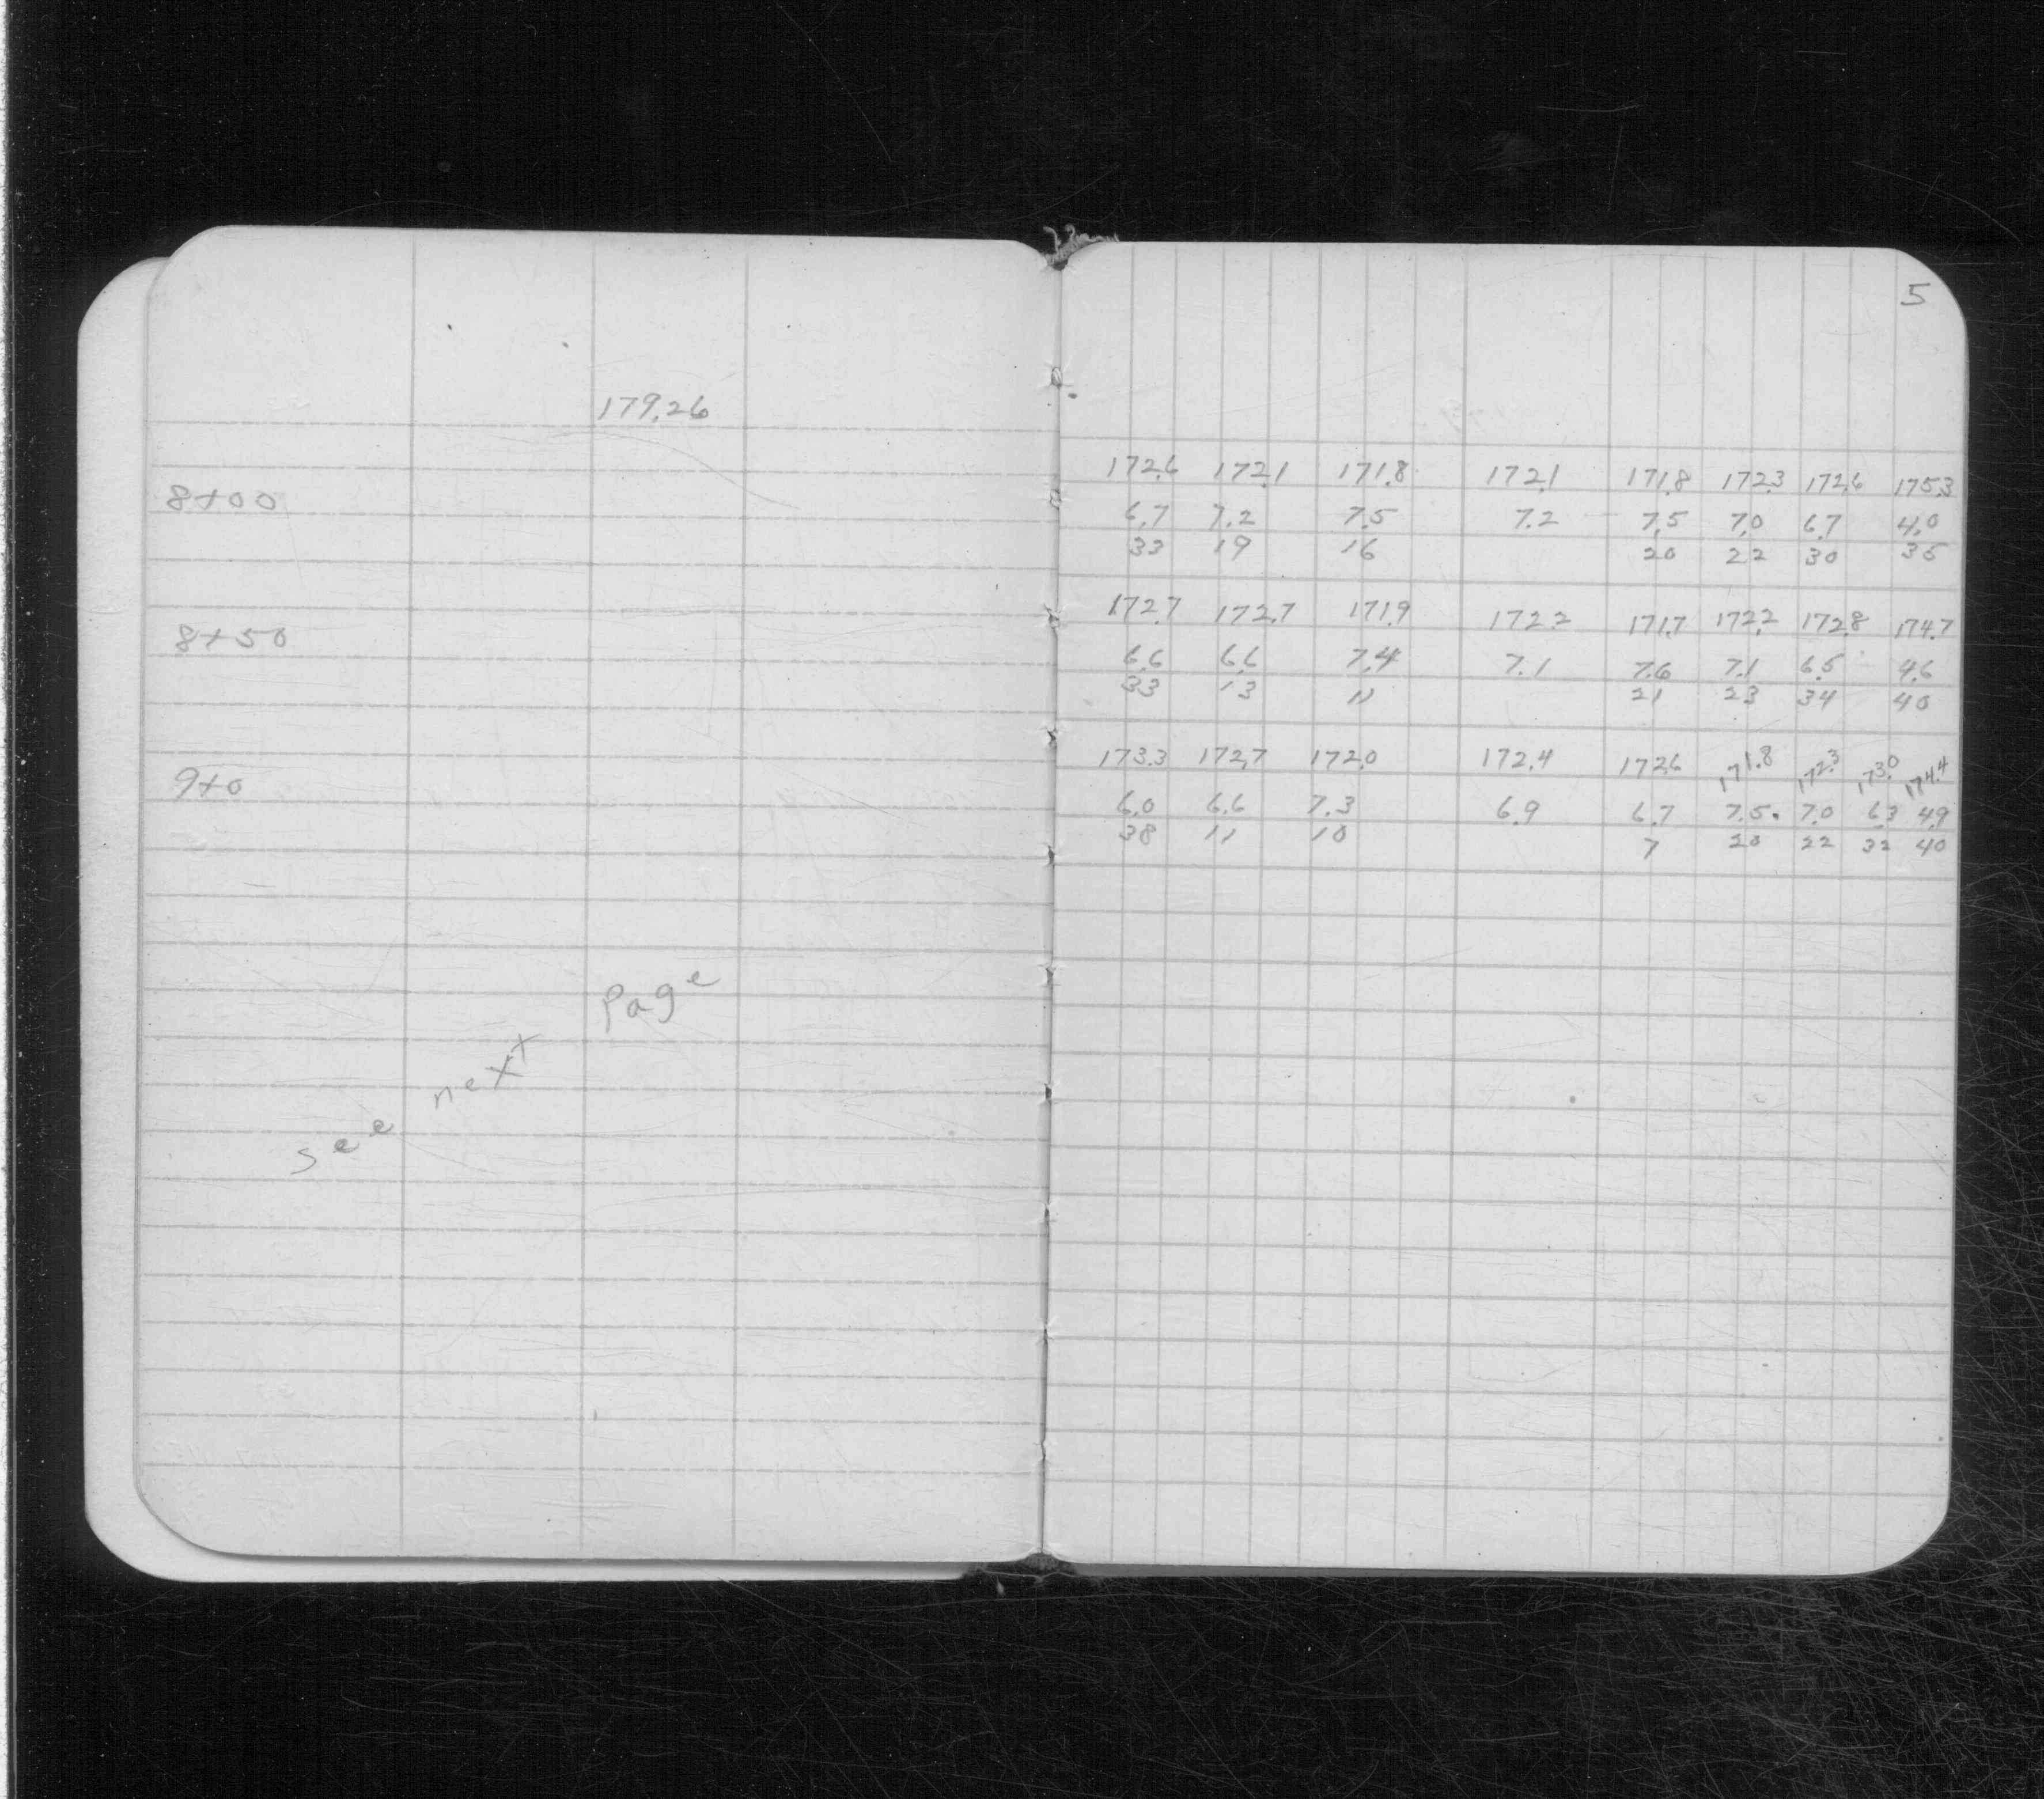 5
179.26
172.6 172.1 171.8 172.1 171.8 172.3 172.6 175.3
8+00 6.7 7.2 7.5 7.2 7.5 7.0 6.7 4.0
33 19 16 20 22 30 35
172.7 172.7 171.9 172.2 171.7 172.2 172.8 174.7
8+50 6.6 6.6 7.4 7.1 7.6 7.1 6.5 4.6
33 13 11 21 23 34 40
173.3 172.7 172.0 172.4 172.6 171.8 172.3 173.0 174.4
9+0 6.0 6.6 7.3 6.9 6.7 7.5 7.0 6.3 4.9
38 11 10 7 20 22 32 40
see next page